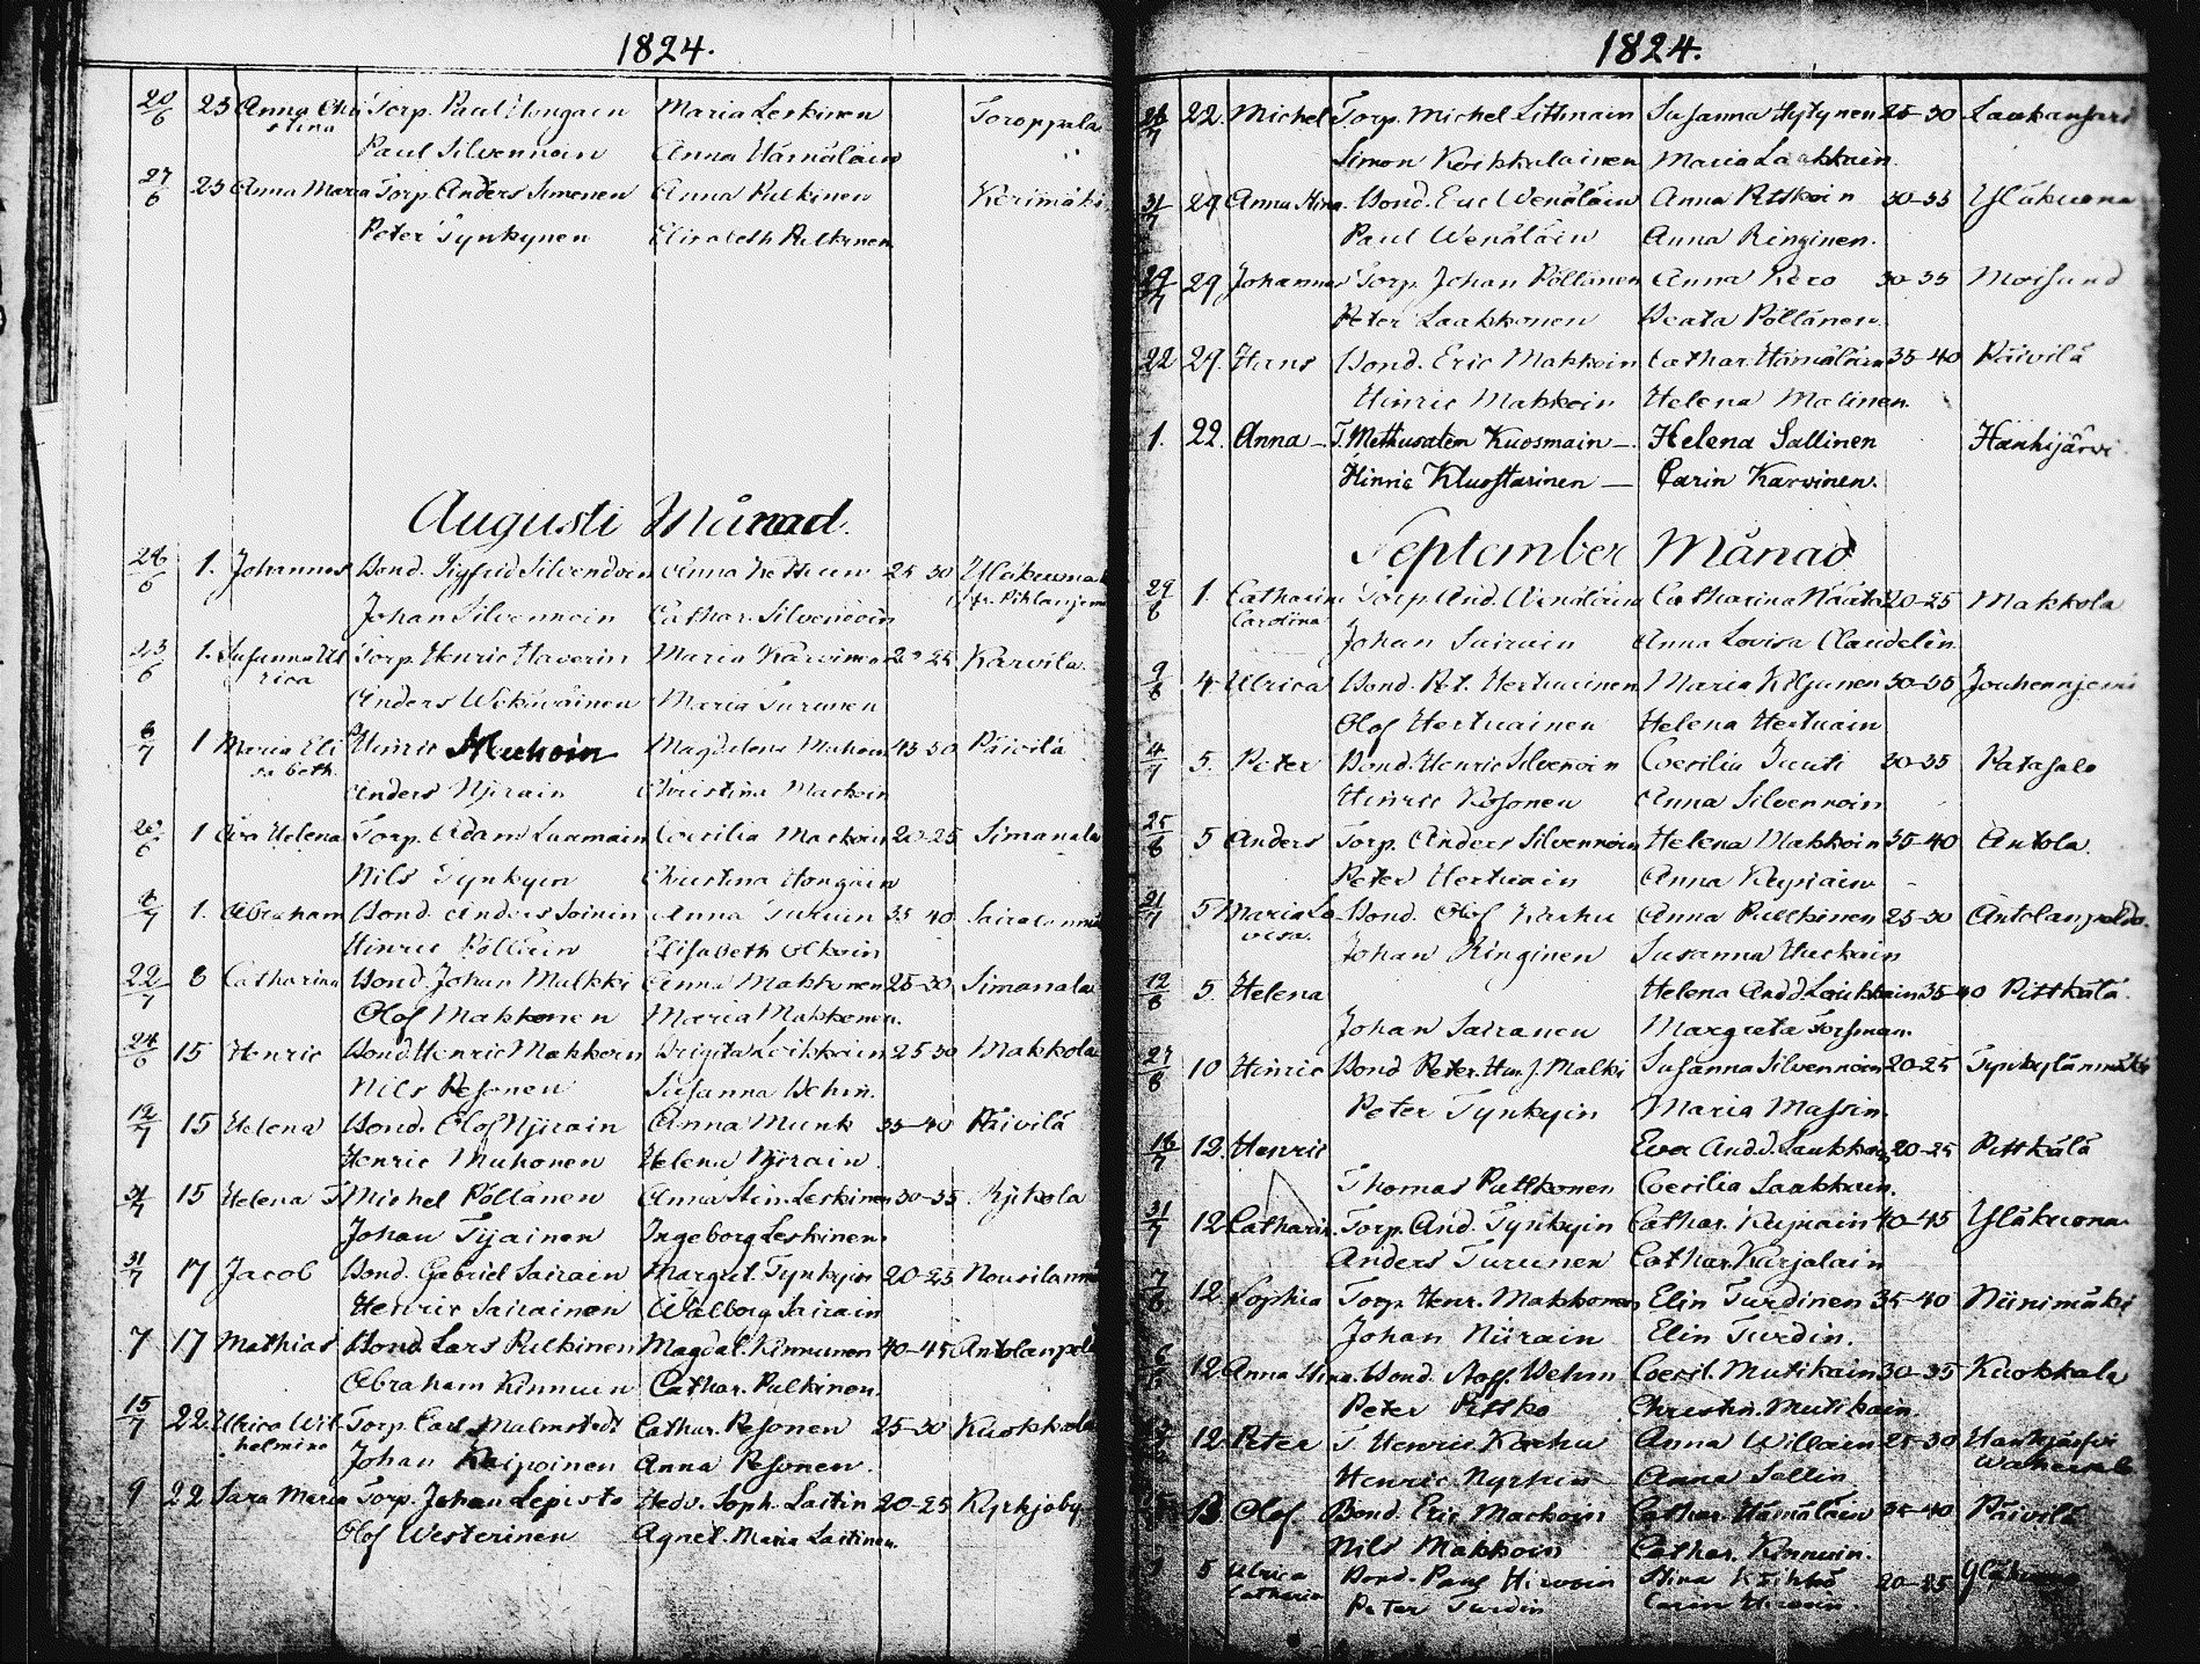 1824.
20/6 23 Anna Chri Torp. Paul Hongain Maria Leskinen Toroppala
stina
Paul Silvennoin Anna Hämäläin
27/6 23 Anna Maria Torp. Anders Simonen Anna Pulkinen Kerimäki
Peter Tynkynen Elisabeth Pulkinen
Augusti Månad.
26/6 1. Johannes Bond. Sigfrid Silvendoin Anna 25 30 Yläkuona
Johan Silvennoin Cathar. Silvennoin
1. Susanna Ul Torp. Henric Haverin Maria Karvinen 20 25 Karvila
rica
Anders Maria Turunen
8/7 1 Maria Eli Hinric Muhoin Magdalena Muhoin 45 50 Päivilä
sabeth.
Anders Njirain Christina Mackoin
20/6 1 Eva Helena Torp. Adam Luamain Coecilia Mackoin 20-25 Simanala
Nils Tynkyin Christina Hongain
8/7 1. Abraham Bond. Anders Soinin Anna Turuin 35 40
Hinric Pölläin Elisabeth Olkoin
22/7 8 Catharina Bond. Johan Mulkki Anna Makkonen 25-30 Simanala
Olof Makkonen Maria Makkonen.
24/6 15 Henric Bond. Henric Makkoin Brigita Leikkain 25 30 Makkola
Nils Pesonen Susanna Behm.
12/7 15 Helena Bond. Olof Njirain Anna Munk 35-40 Päivilä
Henric Muhonen Helena Njirain
31/7 15 Helena T. Michel Pöllänen Anna Stin. Leskinen 30-35 Rjikola
Johan Tijainen Ingeborg Leskinen.
31/7 17 Jacob Bond. Gabriel Sairain Margret. Tynkyin 20-25
Henric Sairainen Walborg Sairain
7 17 Mathias Bond Lars Pulkinen Magdal. Kinnunen 40-45 Antolanpeld
Abraham Kinnuin Cathar. Pulkinen.
15/7 22. Ulrica Wil Torp. Carl Malmstedt Cathar. Pesonen 25-30 Kuokkala
helmina
Johan Kaipoinen Anna Pesonen.
9 22 Sara Maria Torp. Johan Lepisto Hedv. Soph. Laitin 20-25 Kyrkjoby
Olof Westerinen Agnet. Maria Laitinen.
1824.
22. Michel Torp. Michel Littmain Susanna Hytynen 25-30 Laukansari
Simon Koikkalainen Maria Laakkain.
31/7 29 Anna Stina Bond. Eric Wenäläin Anna Pitkoin 30-35 Yläkuona
Paul Wenäläin Anna Ringinen.
29/7 29 Johannes Torp. Johan Pöllänen Anna Kero 30-35 Moisund
Peter Laakkonen Beata Pöllänen.
22 29. Hans Bond. Eric Makkoin Cathar. Hämäläin 35-40 Päivilä
Hinric Makkoin Helena Malinen.
1. 22. Anna - T. Methusalem Kuosmain - Helena Sallinen Hanhijärvi
Hinric Kluostarinen - Carin Karvinen.
September Månad
29/8 1. Catharina Torp. And. Wenäläin Catharina Määtä 20-25 Makkola
Carolina
Johan Sairain Anna Lovisa Claudelin.
9/8 4 Ulrica Bond. Pet. Hertuainen Maria Kiljunen 30-35 Jouhennjemi
Olof Hertuainen Helena Hertuain
4/7 5. Peter Bond. Henric Silvenoin Coecilia Juuti 30-35 Patasalo
Hinric Kosonen Anna Silvennoin
25/8 5 Anders Torp. Anders Silvennoin Helena Makkoin 35-40 Antola
Peter Hertuain Anna
21/7 5 Maria Lo Bond. Olof Karhu Anna Pulkkinen 25-30 Antolanpeldo.
visa.
Johan Ringinen Susanna
12/8 5. Helena Helena And.d. Laukkain 35-40 Pittkälä
Johan Sairanen Margreta Forsman.
27/8 10 Hinric Bond Peter Hin. J. Malki Susanna Silvennoin 20-25 Tynkylänmäki
Peter Tynkyin Maria Massin.
16/7 12. Henric Eva And.d. Laukkain 20-25 Pittkälä
Thomas Pulkkonen Coecilia Laakkain.
31/7 12 Catharin. Torp. And. Tynkyin Cathar. 40-45 Yläkuona
Anders Turunen Cathar. Karjalain
7/8 12. Sophia Torp. Henr. Makkonen Elin Turdinen 35-40 Niinimäki
Johan Niirain Elin Turdin.
12 Anna Stina. Bond. Staff. Behm Coecil. Mutikain 30-35 Kuokkala
Peter Pittko Christin. Mutikain.
12. Peter T. Henric Karhu Anna Willain 25-30 Hanhijärvi
Henric Nyrhin Anna Sallin
13 Olof Bond. Eric Mackoin Cathar. Hämäläin 35-40 Päivilä
Nils Makkoin Cathar. Kinnuin.
5 Ulrica Bond. Paul Hirvoin Stina 20-25 Yläkuona
Catharin Peter Turdin Carin Hirvoin.